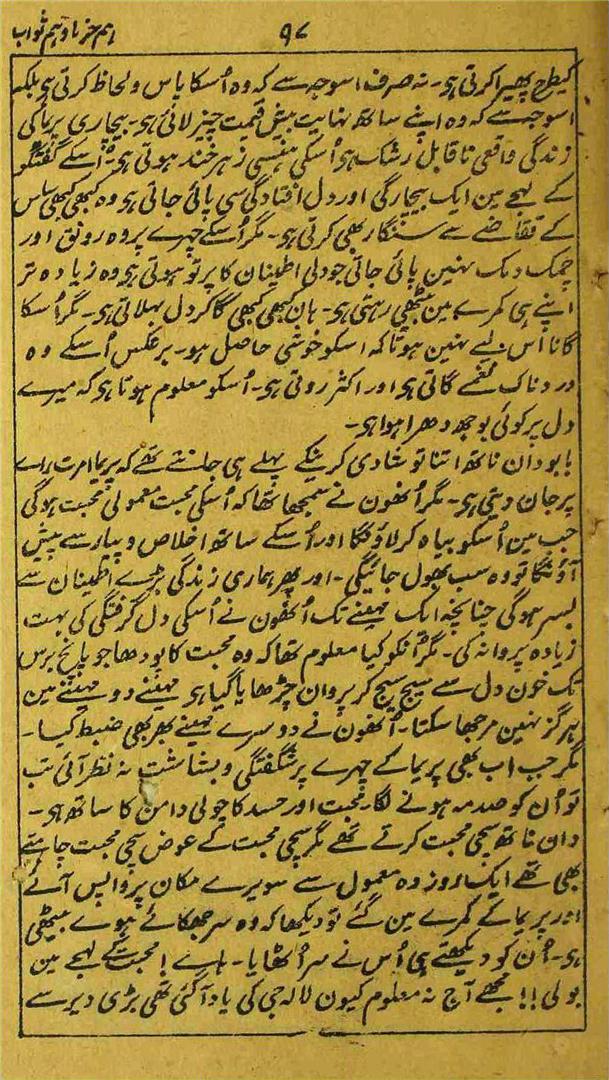 ہم خرما و ہم ثواب
۹۷
کیطرح پھیرا کرتی ہو۔ نہ صرف اسوجہ سے کہ وہ اُسکا پاس و لحاظ کرتی ہو بلکہ
اسوجہ سے کہ وہ اپنے ساتھ نہایت بیش قیمت چیز لائی ہو۔ بیچاری پریما کی
زندگی واقعی ناقابل رشک ہو اُسکی ہنسی زہرخند ہوتی ہو۔ اُسکے گفتگو
کے لہجے مین ایک بیچارگی اور دل افتادگی سی پائی جاتی ہو وہ کبھی کبھی ساس
کے تقاضے سے سنگار بھی کرتی ہو۔ مگر اُسکے چہرے پر وہ رونق اور
چمک دمک نہین پائی جاتی جو دلی اطینان کا پرتو ہوتی ہو وہ زیادہ تر
اپنے ہی کمرے مین بیٹھی رہتی ہو۔ ہان کبھی کبھی گا کر دل بہلاتی ہو۔ مگر اُسکا
گانا اس لیے نہین ہوتا کہ اسکو خوشی حاصل ہو۔ برعکس اُسکے وہ
دردناک نغمے گاتی ہو اور اکثر روتی ہو۔ اُسکو معلوم ہوتا ہو کہ میرے
دل پر کوئی بوجھ دھرا ہوا ہو۔
بابو دان ناتھ اتنا تو شادی کرنیکے پہلے ہی جانتے تھے کہ پریما امرت راے
پر جان دیتی ہو۔ مگر اُنھون نے سمجھا تھا کہ اُسکی محبت معمولی محبت ہوگی
جب مین اُسکو بیاہ کر لاؤنگا اور اُسکے ساتھ اخلاص و پیار سے پیش
آؤنگا تو وہ سب بھول جائیگی۔ اور پھر ہماری زندگی بڑے اطینان سے
بسر ہوگی چنانچہ ایک مہینے تک اُنھون نے اُسکی دل گرفتگی کی بہت
زیادہ پروا نہ کی۔ مگر اُنکو کیا معلوم تھا کہ وہ محبت کا پودھا جو پانچ برس
تک خون دل سے سینچ سینچ کر پروان چڑھایا گیا ہو مہینے دو مہینے مین
ہرگز نہین مرجھا سکتا۔ اُنھون نے دوسرے مہینے بھر بھی ضبط کیا۔
مگر جب اب بھی پریما کے چہرے پر شگفتگی و بشاشت نہ نظر آئی تب
تو اُن کو صدمہ ہونے لگا۔ محبت اور حسد کا چولی دامن کا ساتھ ہو۔
دان ناتھ سچی محبت کرتے تھے مگر سچی محبت کے عوض سچی محبت چاہتے
بھی تھے ایک روز وہ معمول سے سویرے مکان پر واپس آئے
اور پریما کے کمرے مین گئے تو دیکھا کہ وہ سر جھکائے ہوے بیٹھی
ہو۔ اُن کو دیکھتے ہی اُس نے سر اُٹھایا۔ ہاے! محبت کے لہجے مین
بولی!! مجھے آج نہ معلوم کیون لالہ جی کی یاد آگئی تھی بڑی دیر سے